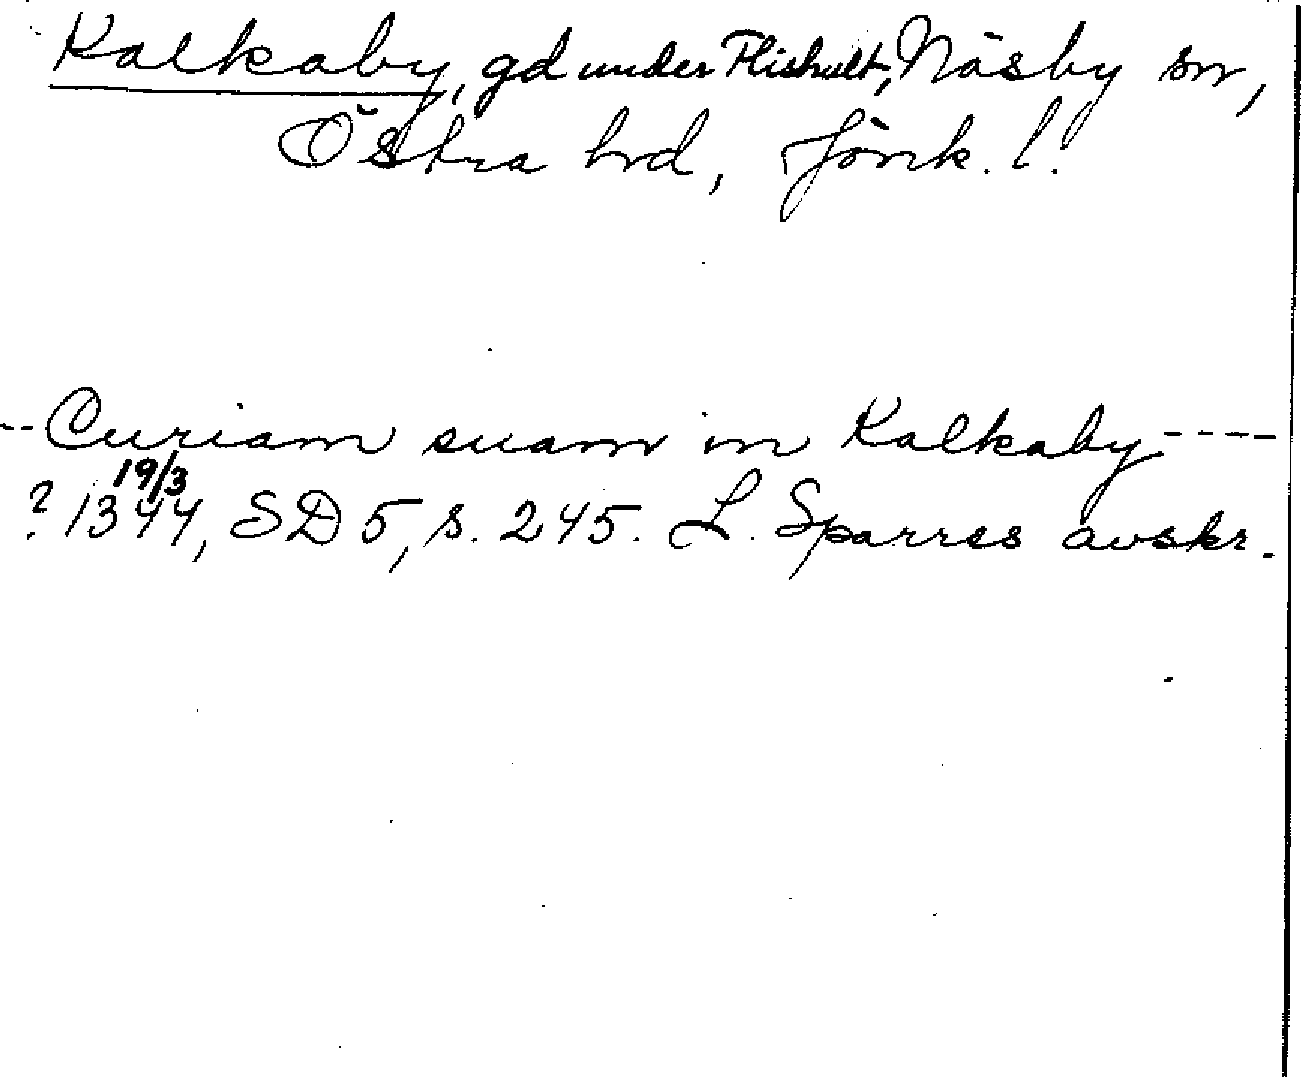 Kalkaby, gd under Flishult, Näsby sn,
Östra hrd, Jönk. l.
-- Curiam suam in Kalkaby ----
19/3
? 1344, SD 5, s. 245. L. Sparres avskr.